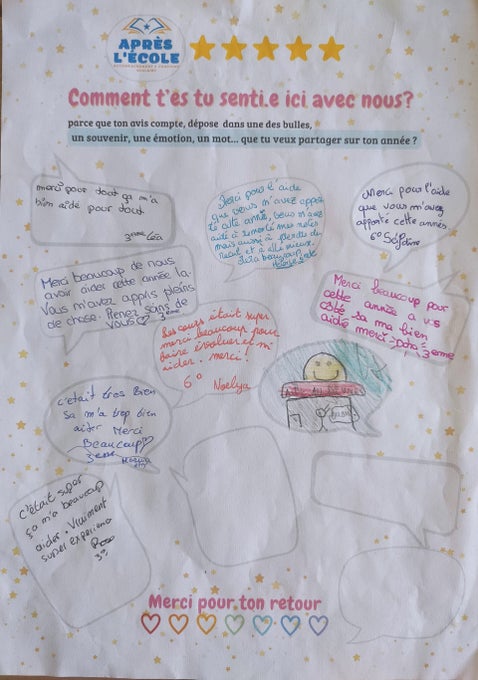 APRÈS
L'ÉCOLE
Comment t'es tu senti.e ici avec nous?
parce que ton avis compte, dépose dans une des bulles,
un souvenir, une émotion, un mot... que tu veux partager sur ton année ?
merci pour tout ça m'a
bien aidé pour tout
3eme Léa
pour l'aide
que vous m'avez
cette année, vous m'avez
aidé à remonté mes notes
mais aussi à perdre du
et à
beaucoup
Merci pour l'aide
que vous m'avez
apporté cette année
6e
Merci beaucoup de nous
avoir aider cette année la.
Vous m'avez appris pleins
de chose. Prenez soin de
vous 3eme
Les cours était super
merci beaucoup pour
faire évoluer et m
aider. merci!
6e Naelya
Merci beaucoup pour
cette année a vos
côté sa ma bien
aidée merci 3eme
c'était très bien
sa m'a trop bien
aider Merci
Beaucoup
3eme
c'était super
ça m'a beaucoup
aider. Vraiment
super experience
3e
Merci pour ton retour